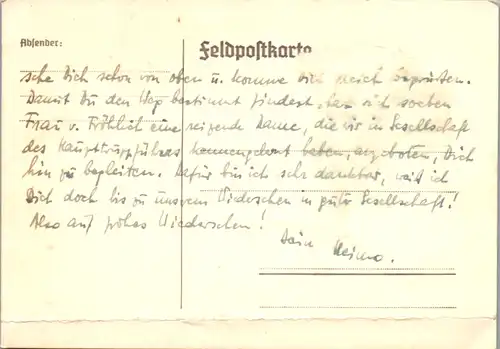 Absender:
Feldpostkarte
sehe Dich schon von oben u. komme Dich gleich begrüßen.
Damit Du den Weg bestimmt findest, hat sich soeben
Frau v. Fröhlich eine reizende Dame, die wir in Gesellschaft
des Haupttruppführers kennengelernt haben, angeboten, Dich
hin zu begleiten. Dafür bin ich sehr dankbar, weiß ich
Dich doch bis zu unserem Wiedersehen in guter Gesellschaft!
Also auf frohes Wiedersehen!
Dein Heimo.